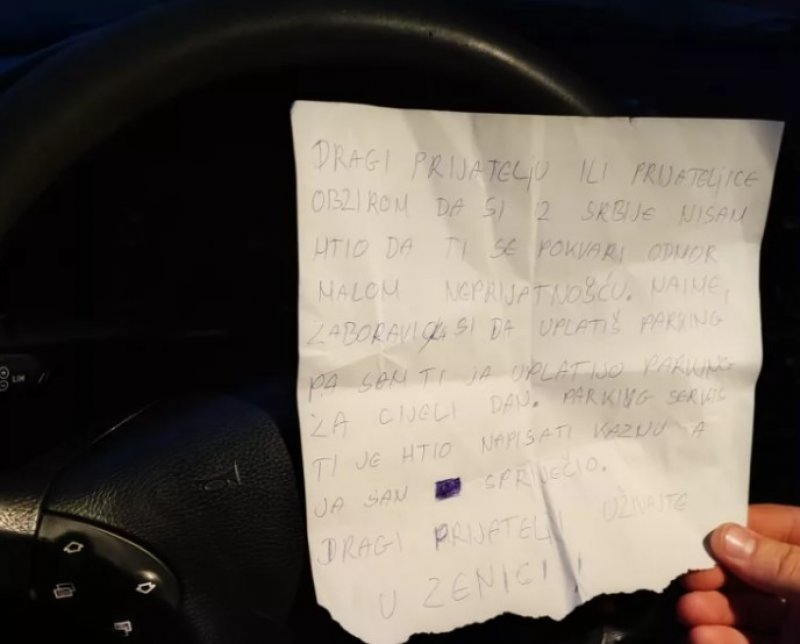 DRAGI PRIJATELJU ILI PRIJATELJICE
OBZIROM DA SI IZ SRBIJE NISAM
HTIO DA TI SE POKVARI ODMOR
MALOM NEPRIJATNOŠĆU. NAIME,
ZABORAVIO/LA SI DA UPLATIŠ PARKING
PA SAM TI JA UPLATIJO PARKING
ZA CIJELI DAN. PARKING SERVIS
TI JE HTIO NAPISATI KAZNU A
JA SAM SPRIJEČIO.
DRAGI PRIJATELJI UŽIVAJTE
U ZENICI!
LIM